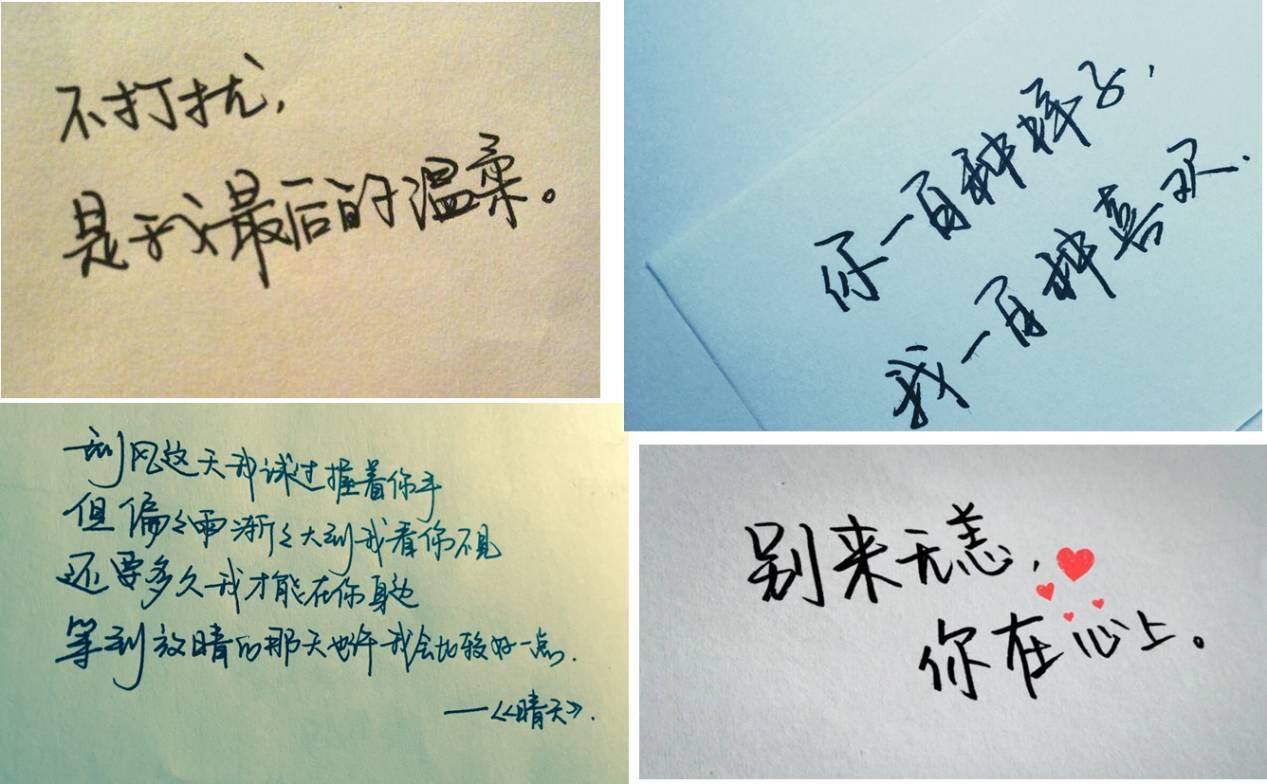 不打扰,
是我最后的温柔。
你一百种样子,
我一百种喜欢.
刮风这天我试过握着你手
但偏々雨渐々大到我看你不见
还要多久我才能在你身边
等到放晴的那天也许我会比较好一点.
—《晴天》.
别来无恙,
你在心上。